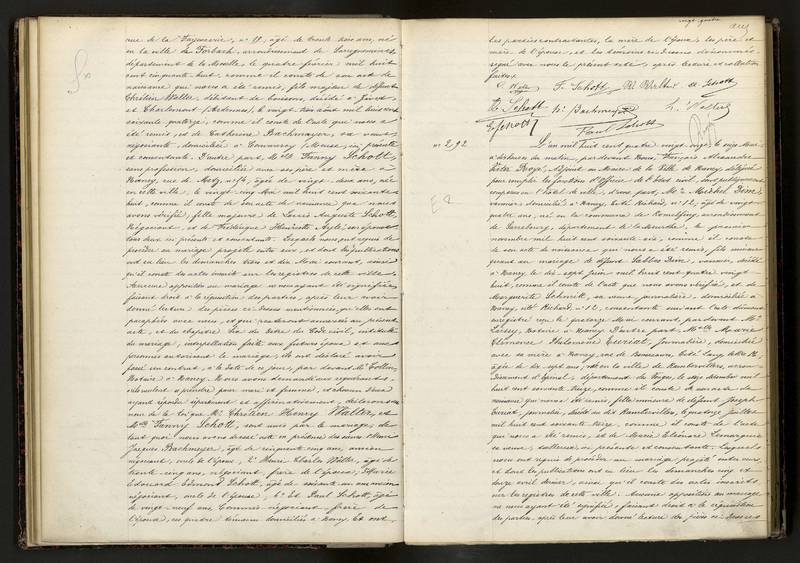 en la ville de Forbach, arrondissement de Sarreguemines,
département de la Moselle, le quatre février mil huit
cent cinquante huit, comme il conste de son acte de
naissance qui nous a été remis, fils majeur de défunt
Chrétien Walter, débitant de boissons, décédé à Givet
et Charlemont (Ardennes), le vingt trois août mil huit cent
soixante quatorze, comme il conste de l'acte que nous a
été remis, et de Catherine Bachmayer, sa veuve
négociante, domiciliée à Commercy (Meuse), ici présente
et consentante. D'autre part, Mlle Fanny Schott,
sans profession, domiciliée avec ses père et mère à
Nancy, rue de Metz, âgée de vingt deux ans, née
en cette ville le vingt cinq mai mil huit cent soixante
huit, comme il conste de son acte de naissance que nous
avons vérifié, fille majeure de Louis Auguste Schott
Négociant, et de Frédérique Henriette
tous deux ici présents et consentants. Lesquels nous ont requis de
procéder au mariage projeté entre eux, et dont les publications
ont eu lieu les dimanches trois et dix Mai courant, ainsi
qu'il conste des actes inscrits sur les registres de cette ville.
Aucune opposition au mariage ne nous ayant été signifiée,
faisant droit à la réquisition des parties, après leur avoir
donné lecture des pièces ci-dessus mentionnées, qu'elles ont
paraphées avec nous, et qui resteront annexées au présent
acte, et du chapitre six du titre du Code civil, intitulé
du mariage, interpellation faite aux futurs époux et aux
personnes autorisant le mariage, ils ont déclaré avoir
fait un contrat, à la date de ce jour, par devant Me
Notaire à Nancy. Nous avons demandé aux requérants,
s'ils veulent se prendre pour mari et femme, et chacun d'eux
ayant répondu séparément et affirmativement, déclarons au
nom de la loi que Mr. Chrétien Henry Walter, et
Mlle Fanny Schott, sont unis par le mariage ; de
tout quoi nous avons dressé acte en présence des sieurs
Jacques Bachmeyer, âgé de cinquante cinq ans, ancien
négociant, oncle de l'époux, 2° Henri Charles Walter, âgé de
trente cinq ans, négociant, frère de l'époux,
Edouard Edmond Schott, âgé de soixante un ans, ancien
négociant, oncle de l'épouse, 4° et Paul Schott, âgé
de vingt-neuf ans, Commis-négociant, frère de
l'épouse, ces quatre témoins domiciliés à Nancy. Et ont
vingt-quatre
les parties contractantes, la mère de l'époux, les père et
mère de l'épouse, et les témoins ci-dessus dénommés,
signé avec nous le présent acte, après lecture et collation
faites.
F. Schott
Schott
Schott Bachmeyer Walter
Schott Paul Schott
n° 292
L'an mil huit cent quatre vingt onze, le onze Mai
à dix heures du matin, par devant Nous, François Alexandre
Victor Adjoint au Maire de la Ville de Nancy, délégué
pour remplir les fonctions d'officier de l'état civil, sont
comparus en l'hôtel de ville. D'une part, Mr. Michel
vannier, domicilié à Nancy, cité Richard, n° 12, âgé de vingt
quatre ans, né en la commune de arrondissement
de Sarrebourg, département de la Meurthe, le premier
novembre mil huit cent soixante six, comme il conste
de son acte de naissance qui nous a été remis, fils majeur
quant au mariage de défunt vannier, décédé
à Nancy le dix sept juin mil huit cent quatre vingt
huit, comme il conste de l'acte que nous avons vérifié, et de
Marguerite Schmitt, sa veuve, journalière, domiciliée à
Nancy, cité Richard, n° 12, consentante suivant acte dûment
enregistré reçu le quatorze Mai courant par devant Me
Notaire à Nancy. D'autre part, Mlle Marie
Clémence Philomène Curiat, journalière, domiciliée
avec sa mère à Nancy, rue de
âgée de dix sept ans, née en la ville de Rambervillers,
d'Epinal, département des Vosges, le
huit cent soixante treize, comme il conste de son acte de
naissance qui nous a été remis, fille mineure de défunt Joseph
Curiat, journalier, décédé au dit Rambervillers, le quatorze juillet
mil huit cent soixante treize, comme il conste de l'acte
qui nous a été remis, et de Marie Eléonore
sa veuve, ici présente et consentante. Lesquels
nous ont requis de procéder au mariage projeté entre eux
et dont les publications ont eu lieu les dimanches cinq et
douze avril dernier, ainsi qu'il conste des actes inscrits
sur les registres de cette ville. Aucune opposition au mariage
ne nous ayant été signifiée, faisant droit à la réquisition
des parties, après leur avoir donné lecture des pièces ci-dessus